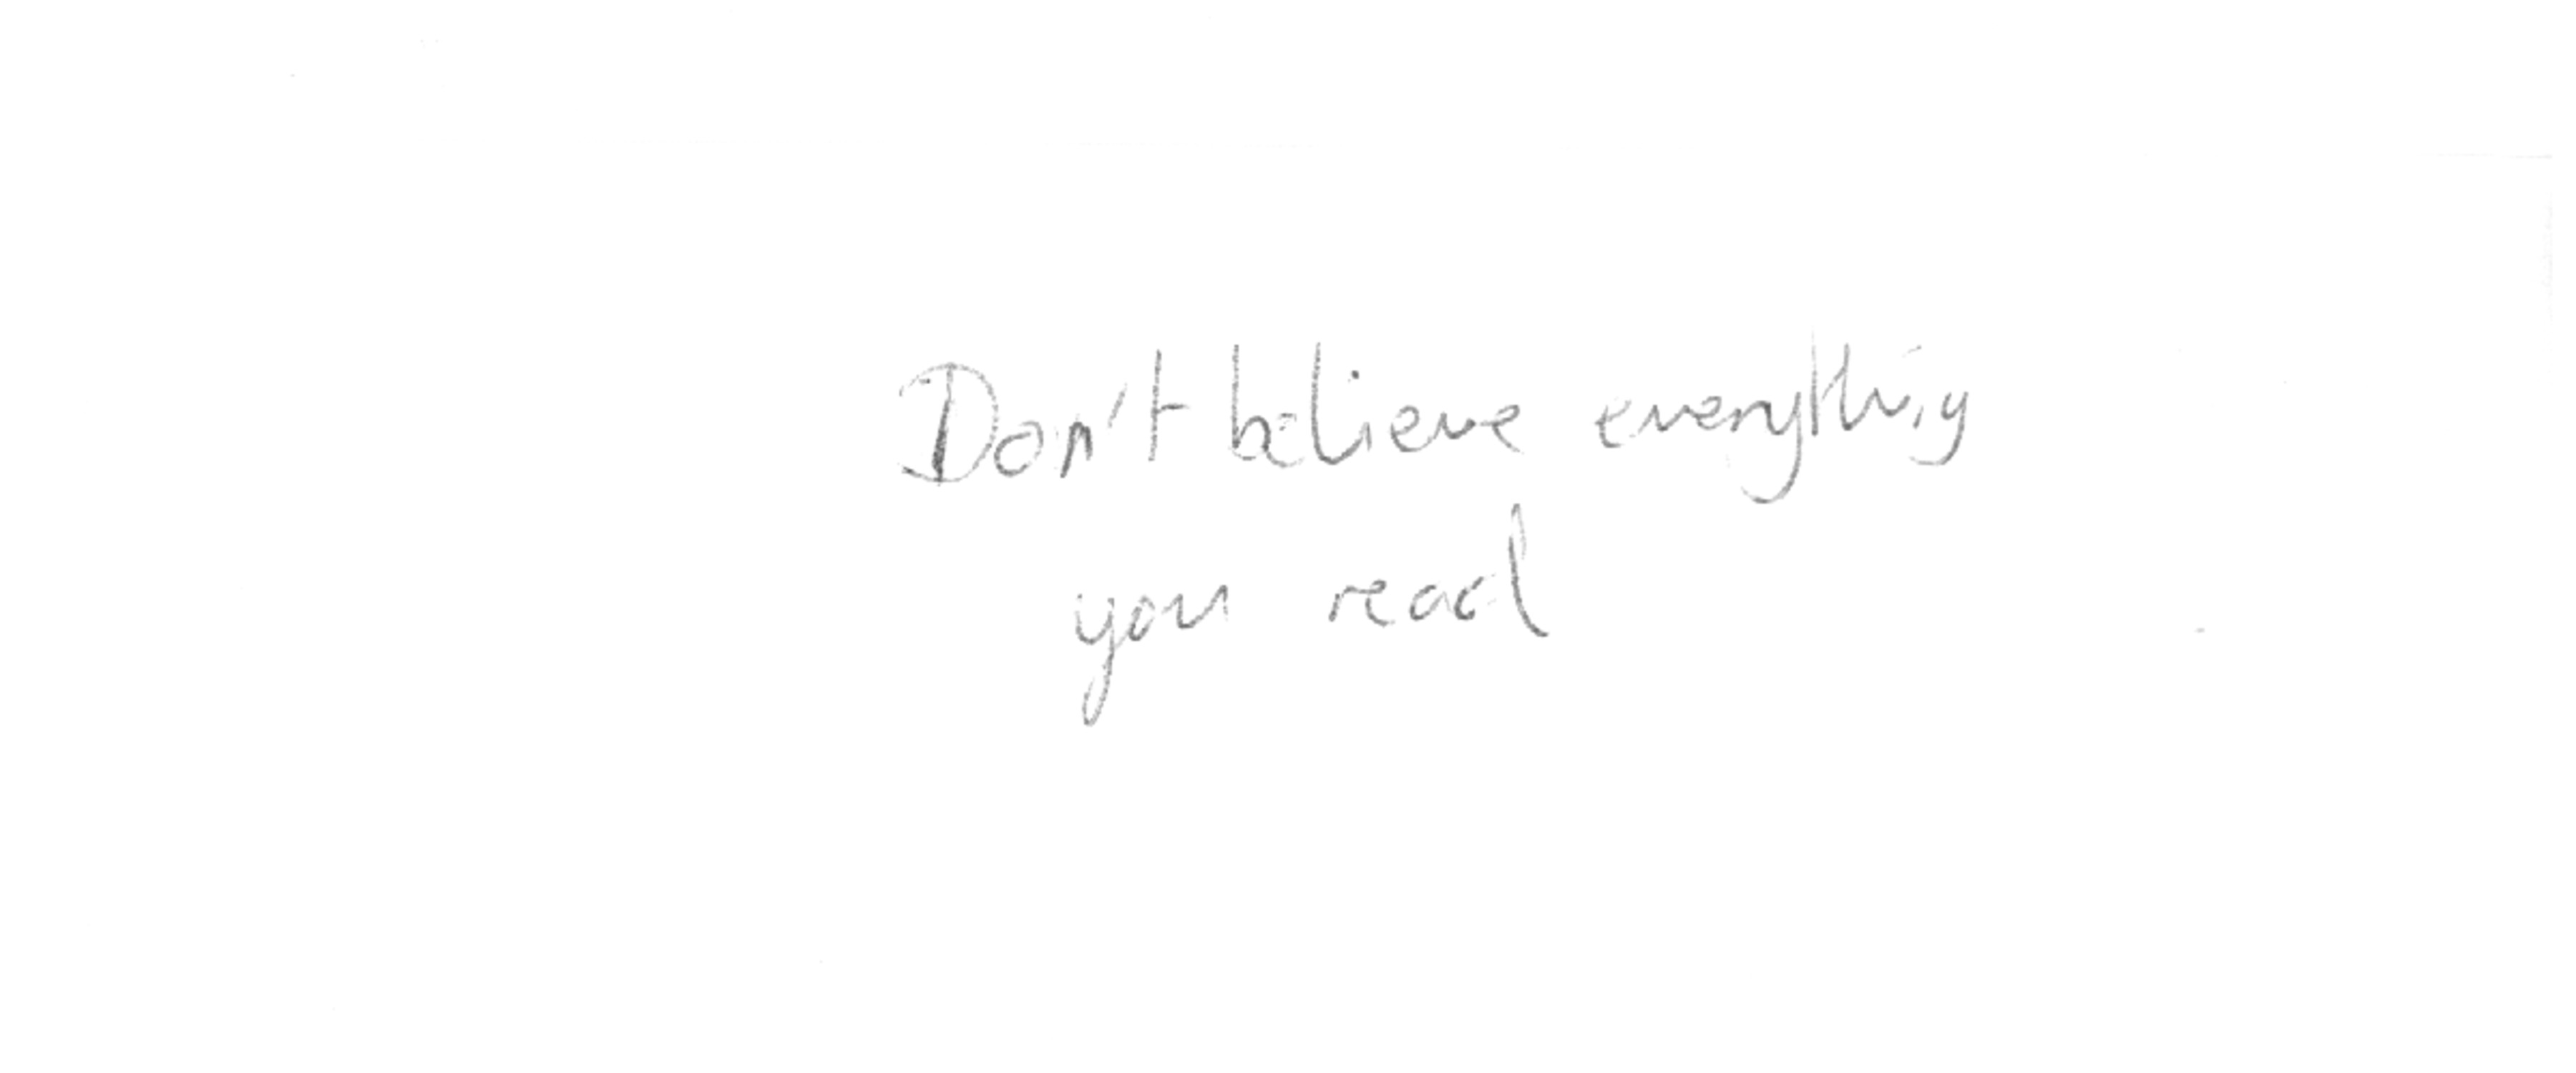 Don't believe everything
you read